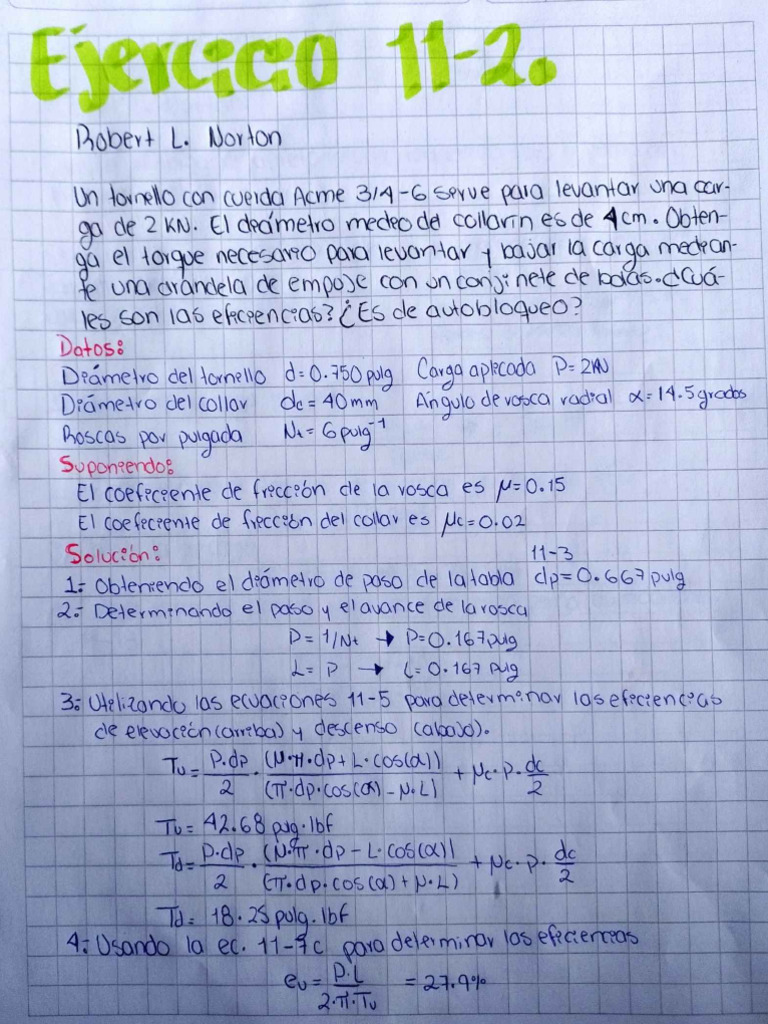 Ejercicio 11-2.
Robert L. Norton
Un tornello con cuerda Acme 3/4-6 serve para levantar una car-
ga de 2 KN. El deámetro medeo del collarín es de 4cm. Obten-
ga el torque necesario para levantar y bajar la carga median-
te una arandela de empuje con un conjinete de bolas. ¿Cuá-
les son las eficiencias? ¿Es de autobloqueo?
Datos:
Diámetro del tornello d=0.750 pulg Carga aplicada P=2KN
Diámetro del collar dc=40mm Angulo de vosca radial α=14.5 grados
Roscas por pulgada Nt=6 pulg⁻¹
Suponiendo:
El coeficiente de fricción de la rosca es μ=0.15
El coeficiente de fricción del collar es μc=0.02
Solución:
11-3
1.- Obteniendo el diámetro de paso de la tabla dp=0.667 pulg
2.- Determinando el paso y el avance de la rosca
P=1/Nt → P=0.167 pulg
L=P → L=0.167 pulg
3.- Utilizando las ecuaciones 11-5 para determinar las eficiencias
de elevación (arriba) y descenso (abajo).
Tu = P·dp/2 · (μ·π·dp+L·cos(α))/(π·dp·cos(α)-μ·L) + μc·P·dc/2
Tu = 42.68 pulg·lbf
Td = P·dp/2 · (μ·π·dp-L·cos(α))/(π·dp·cos(α)+μ·L) + μc·P·dc/2
Td = 18.25 pulg·lbf
4.- Usando la ec. 11-7c para determinar las eficiencias
eu = P·L/2·π·Tu = 27.9%